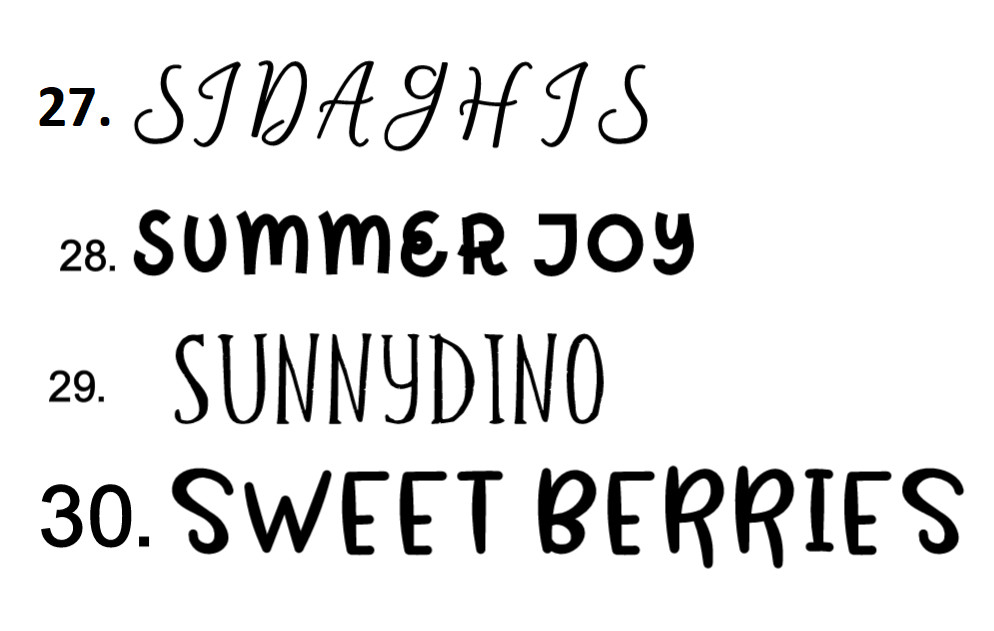 27. SIDAGHIS
28. SUMMER JOY
29. SUNNYDINO
30. SWEET BERRIES